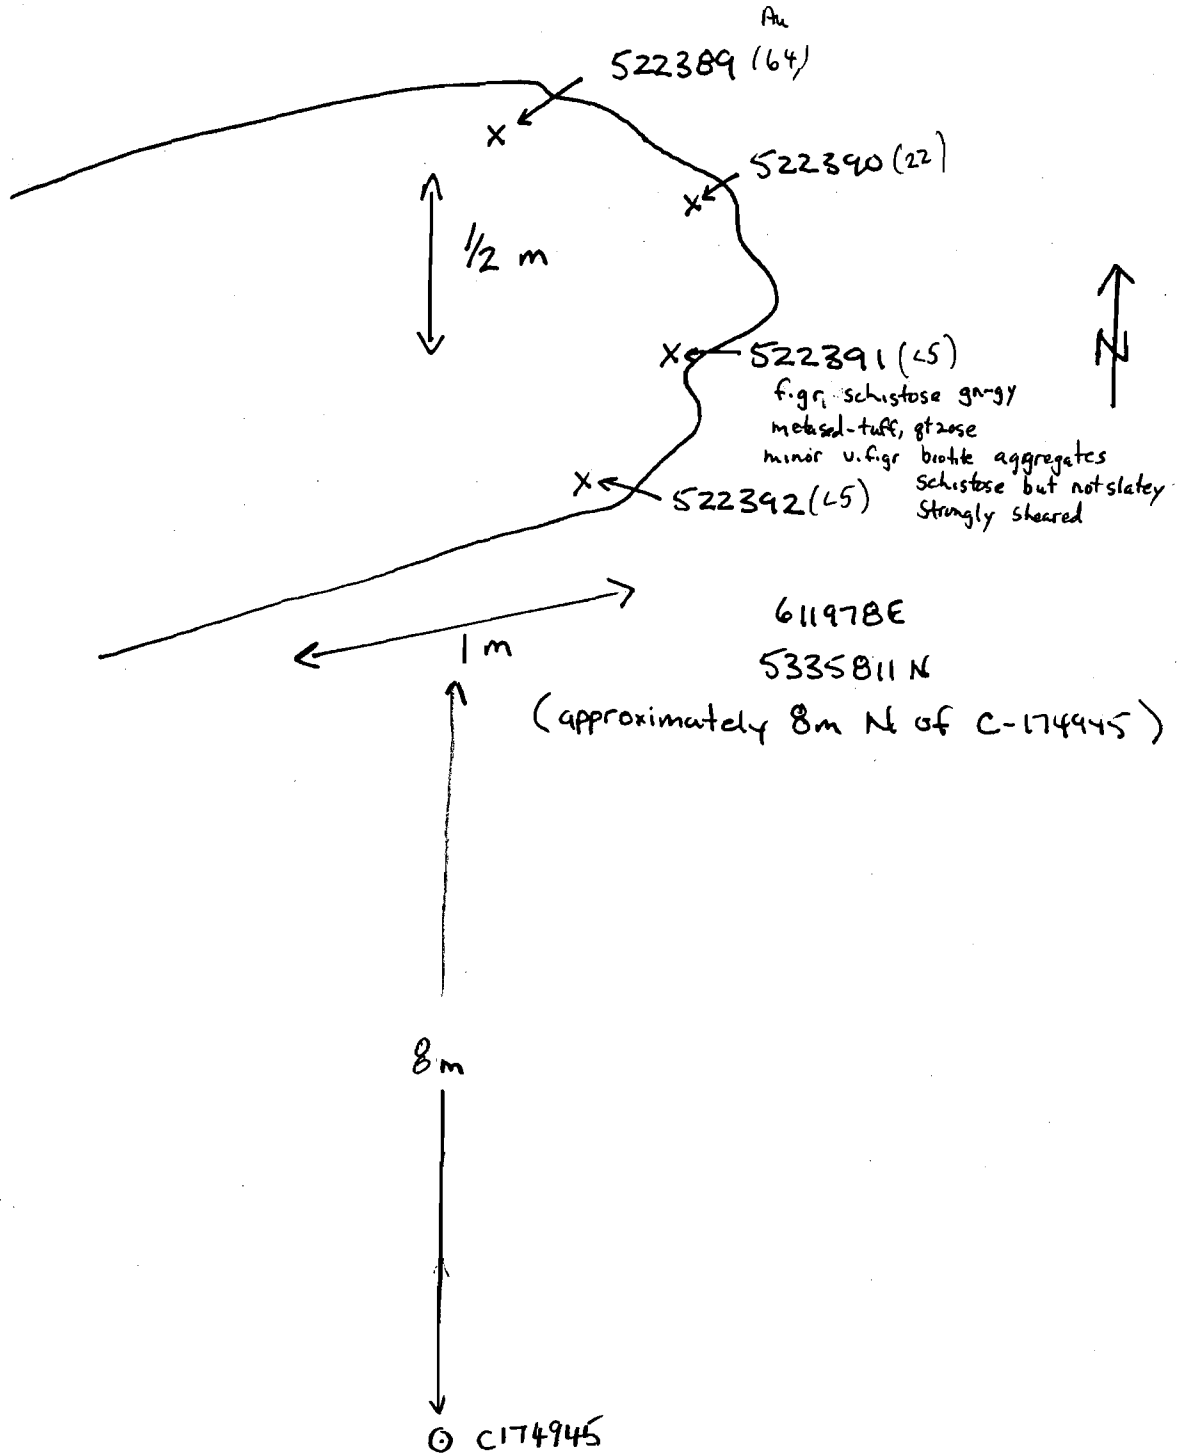 Au
522389 (64)
522390 (22)
1/2 m
N
522391 (<5)
f.gr, schistose gn-gy
metased-tuff, qtzose
minor v.f.gr biotite aggregates
schistose but not slatey
Strongly sheared
522392 (<5)
1 m
611978E
5335811 N
(approximately 8m N of C-174945)
8m
C174945